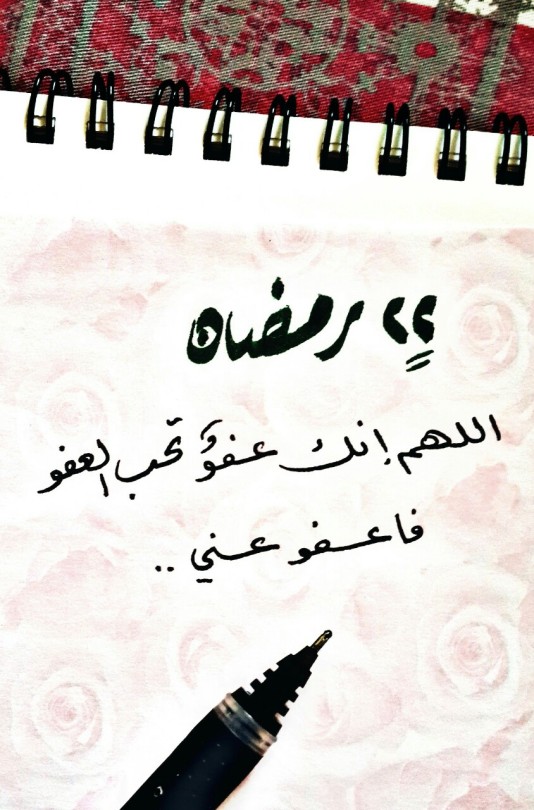 ٢٢ رمضان
اللهم إنك عفوٌ تحب العفو
فاعفو عني ..